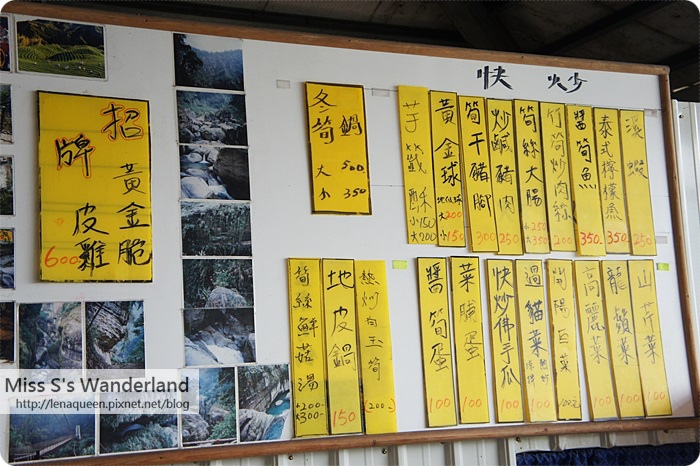 快炒
招牌
黃金脆皮雞
600
冬筍鍋
大 500
小 350
芋籤酥
小150
大200
黃金球
200
小150
筍干豬腳
300
炒鹹豬肉
250
筍絲大腸
小250
大350
竹筍炒肉絲
200
醬筍魚
350
泰式檸檬魚
350
溪蝦
250
筍絲鮮菇湯
小200
大300
地皮鍋
150
熱炒白玉筍
(200)
醬筍蛋
100
菜脯蛋
100
快炒佛手瓜
100
過貓菜
100
100元
高麗菜
100
龍鬚菜
100
山芹菜
100
Miss S's Wanderland
http://lenaqueen.pixnet.net/blog